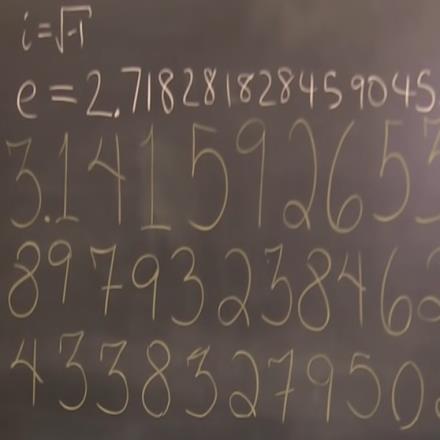 i=√-1
e=2.718281828459045
3.14159265 3
8979323846 2
4338327950 2